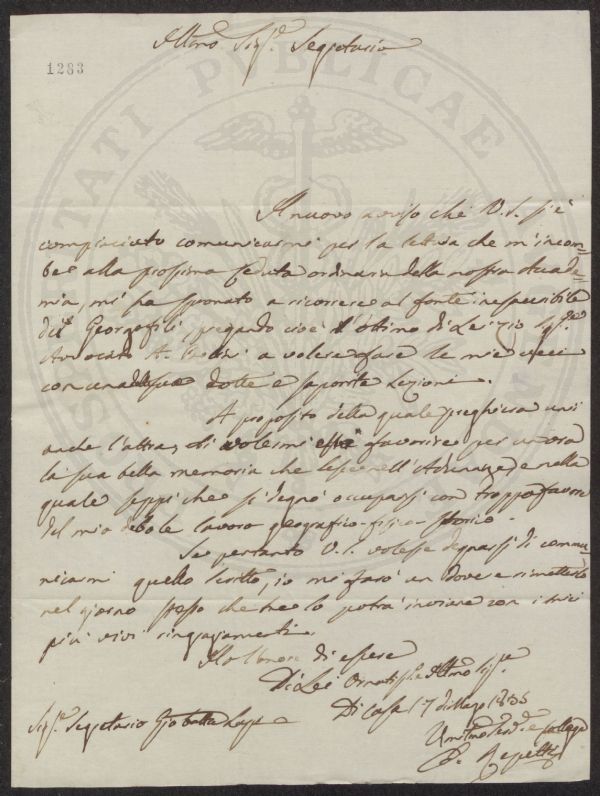 Illmo Sigr. Segretario
1283
Il nuovo avviso che V. S. si è
compiaciuto comunicarmi per la lettura che m'incom-
be alla prossima seduta ordinaria della nostra Accade-
mia, mi ha spronato a ricorrere al fonte inesauribile
dei Georgofili, pregando cioè l'ottimo di Lei zio Sigr.
Avvocato A. a volere fare le mie veci
con una delle sue dotte e saporite Lezioni.
A proposito della quale preghiera unisi
anche l'altra, di volermi favorire per un'ora
la sua bella memoria che lesse nell'Adunanza e nella
quale seppi che si degnò occuparsi con troppo favore
del mio debole lavoro geografico-fisico-storico.
Se pertanto V. S. volesse degnarsi di comu-
nicarmi quello scritto, io mi farò un dovere rimetterlo
nel giorno stesso che me lo potrà inviare con i miei
più vivi ringraziamenti.
Ho l'onore di essere
Di Lei Ornatisso Illmo Sigr.
Di Casa 17 Marzo 1835
Sigr. Segretario Gio batta Lapi
Umilmo Servo e collega
E. Repetti
SPERITATI PUBLICAE